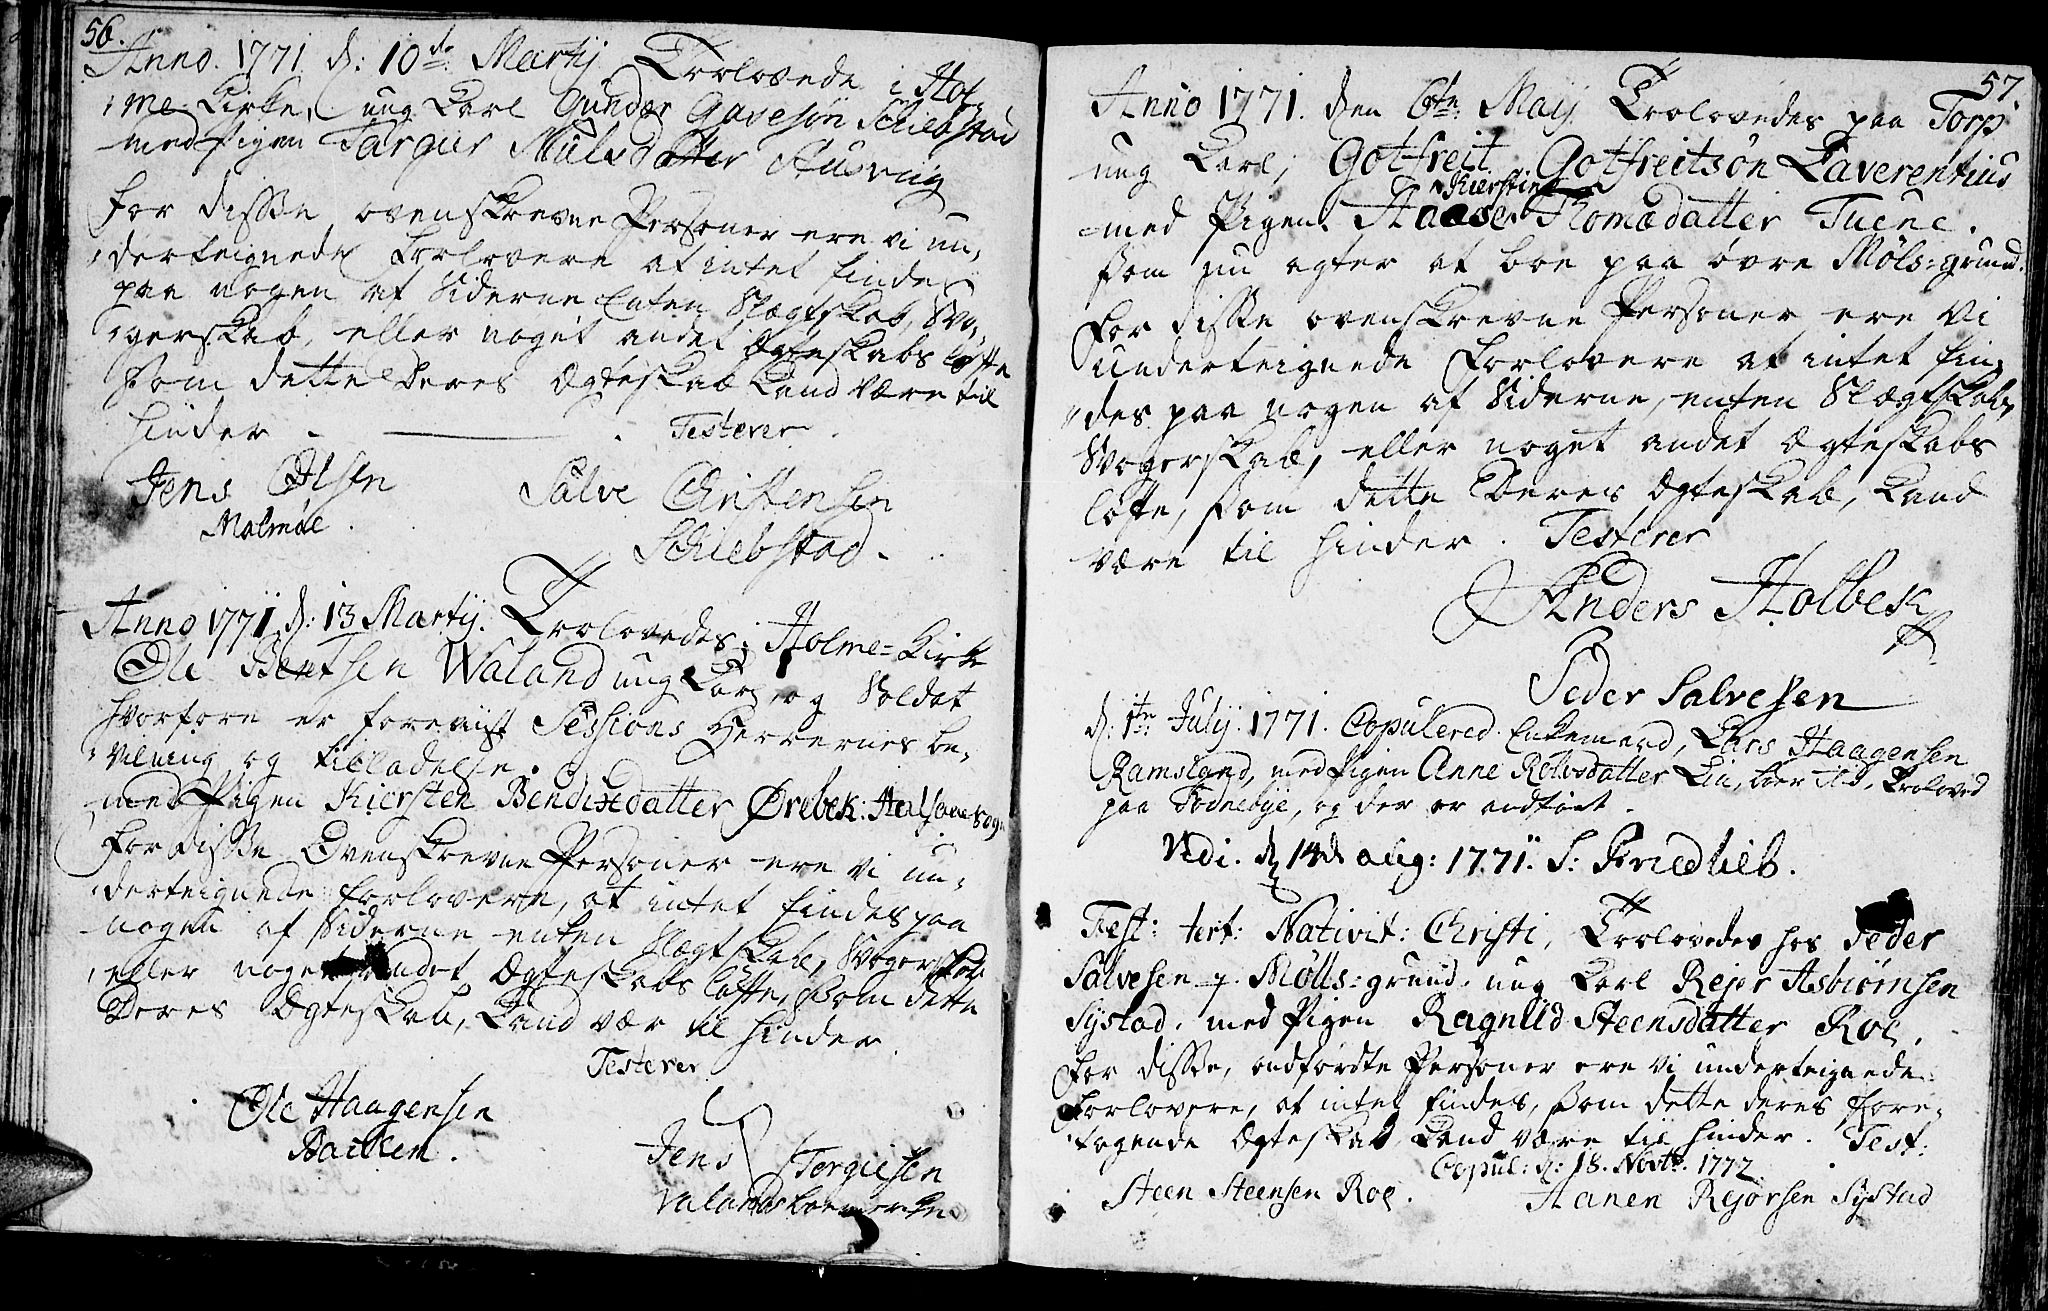 56.
Anno. 1771 d: 10de Martij Trolovede i Hol-
me Kirke, ung Karl Gunder Gavesøn Schiebstad
med Pigen Targier Nielsdatter Ausvig
For disse ovenskrevne Personer ere vi un-
derteignede Forlovere at intet findes
paa nogen af Siderne Enten Slægtskab, Svo-
gerskab, eller noget andet Ægteskabs løfte
som dette Deres Ægteskab Kand være til
hinder - . Testerer.
Jens Olsen Salve Christensen
Malmøe. Schiebstad.
Anno 1771 d: 13 Martij. Trolovedes i Holme-Kirke
Ole Bentsen Waland ung Karl og Soldat
hvorfore er foreviist Sessions Herrernes be-
vilning og tilladelse.
med Pigen Kiersten Bendixdatter Ørebek: Halsaae Sogn
For disse Ovenskrevne Personer ere vi un-
derteignede forlovere, at intet findes paa
nogen af Siderne enten Slægtskab, Svogerskab
eller noget andet Ægteskabs løfte, som dette
Deres Ægteskab, Kand vær til hinder.
Testerer
Ole Haagensen
Backen. Jens Tergiesen
Valands
57.
Anno 1771. den 6te Maij Trolovedes paa Torp
ung Karl, Gotfreit Gotfreitsøn Laverentius
Kierstin
med Pigen Aase Thomædatter Tuene.
som nu agter at boe paa øvre Møls-grund.
For disse ovenskrevne Personer ere Vi
underteignede Forlovere at intet fin-
des paa nogen af Siderne, enten Slægtskab,
Svogerskab, eller noget andet Ægteskabs
løfte, som dette Deres Ægteskab, Kand
være til hinder. Testerer
Anders Holbek
Peder Salvesen
d: 1te Julij. 1771. Copulered. Enkemand, Lars Haagensen
Ramsland, med Pigen Anne Rolvsdatter Lin, Troloved
paa Todnebye, og der er andført.
Vidi. d 14de aug: 1771. S: Friedlieb.
Fest: tert: Nativit: Christi, Trolovedes hos Peder
Salvesen p. Mølls-grund. ung Karl Rejer Asbiørnsen
Systad. med Pigen Ragnild Steensdatter Roe.
For disse, andførdte Personer ere vi underteignede
Forlovere, at intet findes, som dette deres fore-
tagende Ægteskab Kand være til hinder. Test:
Copul: d: 18. Novbr. 1772
Steen Steensen Roe. Aanen Rejersen Systad